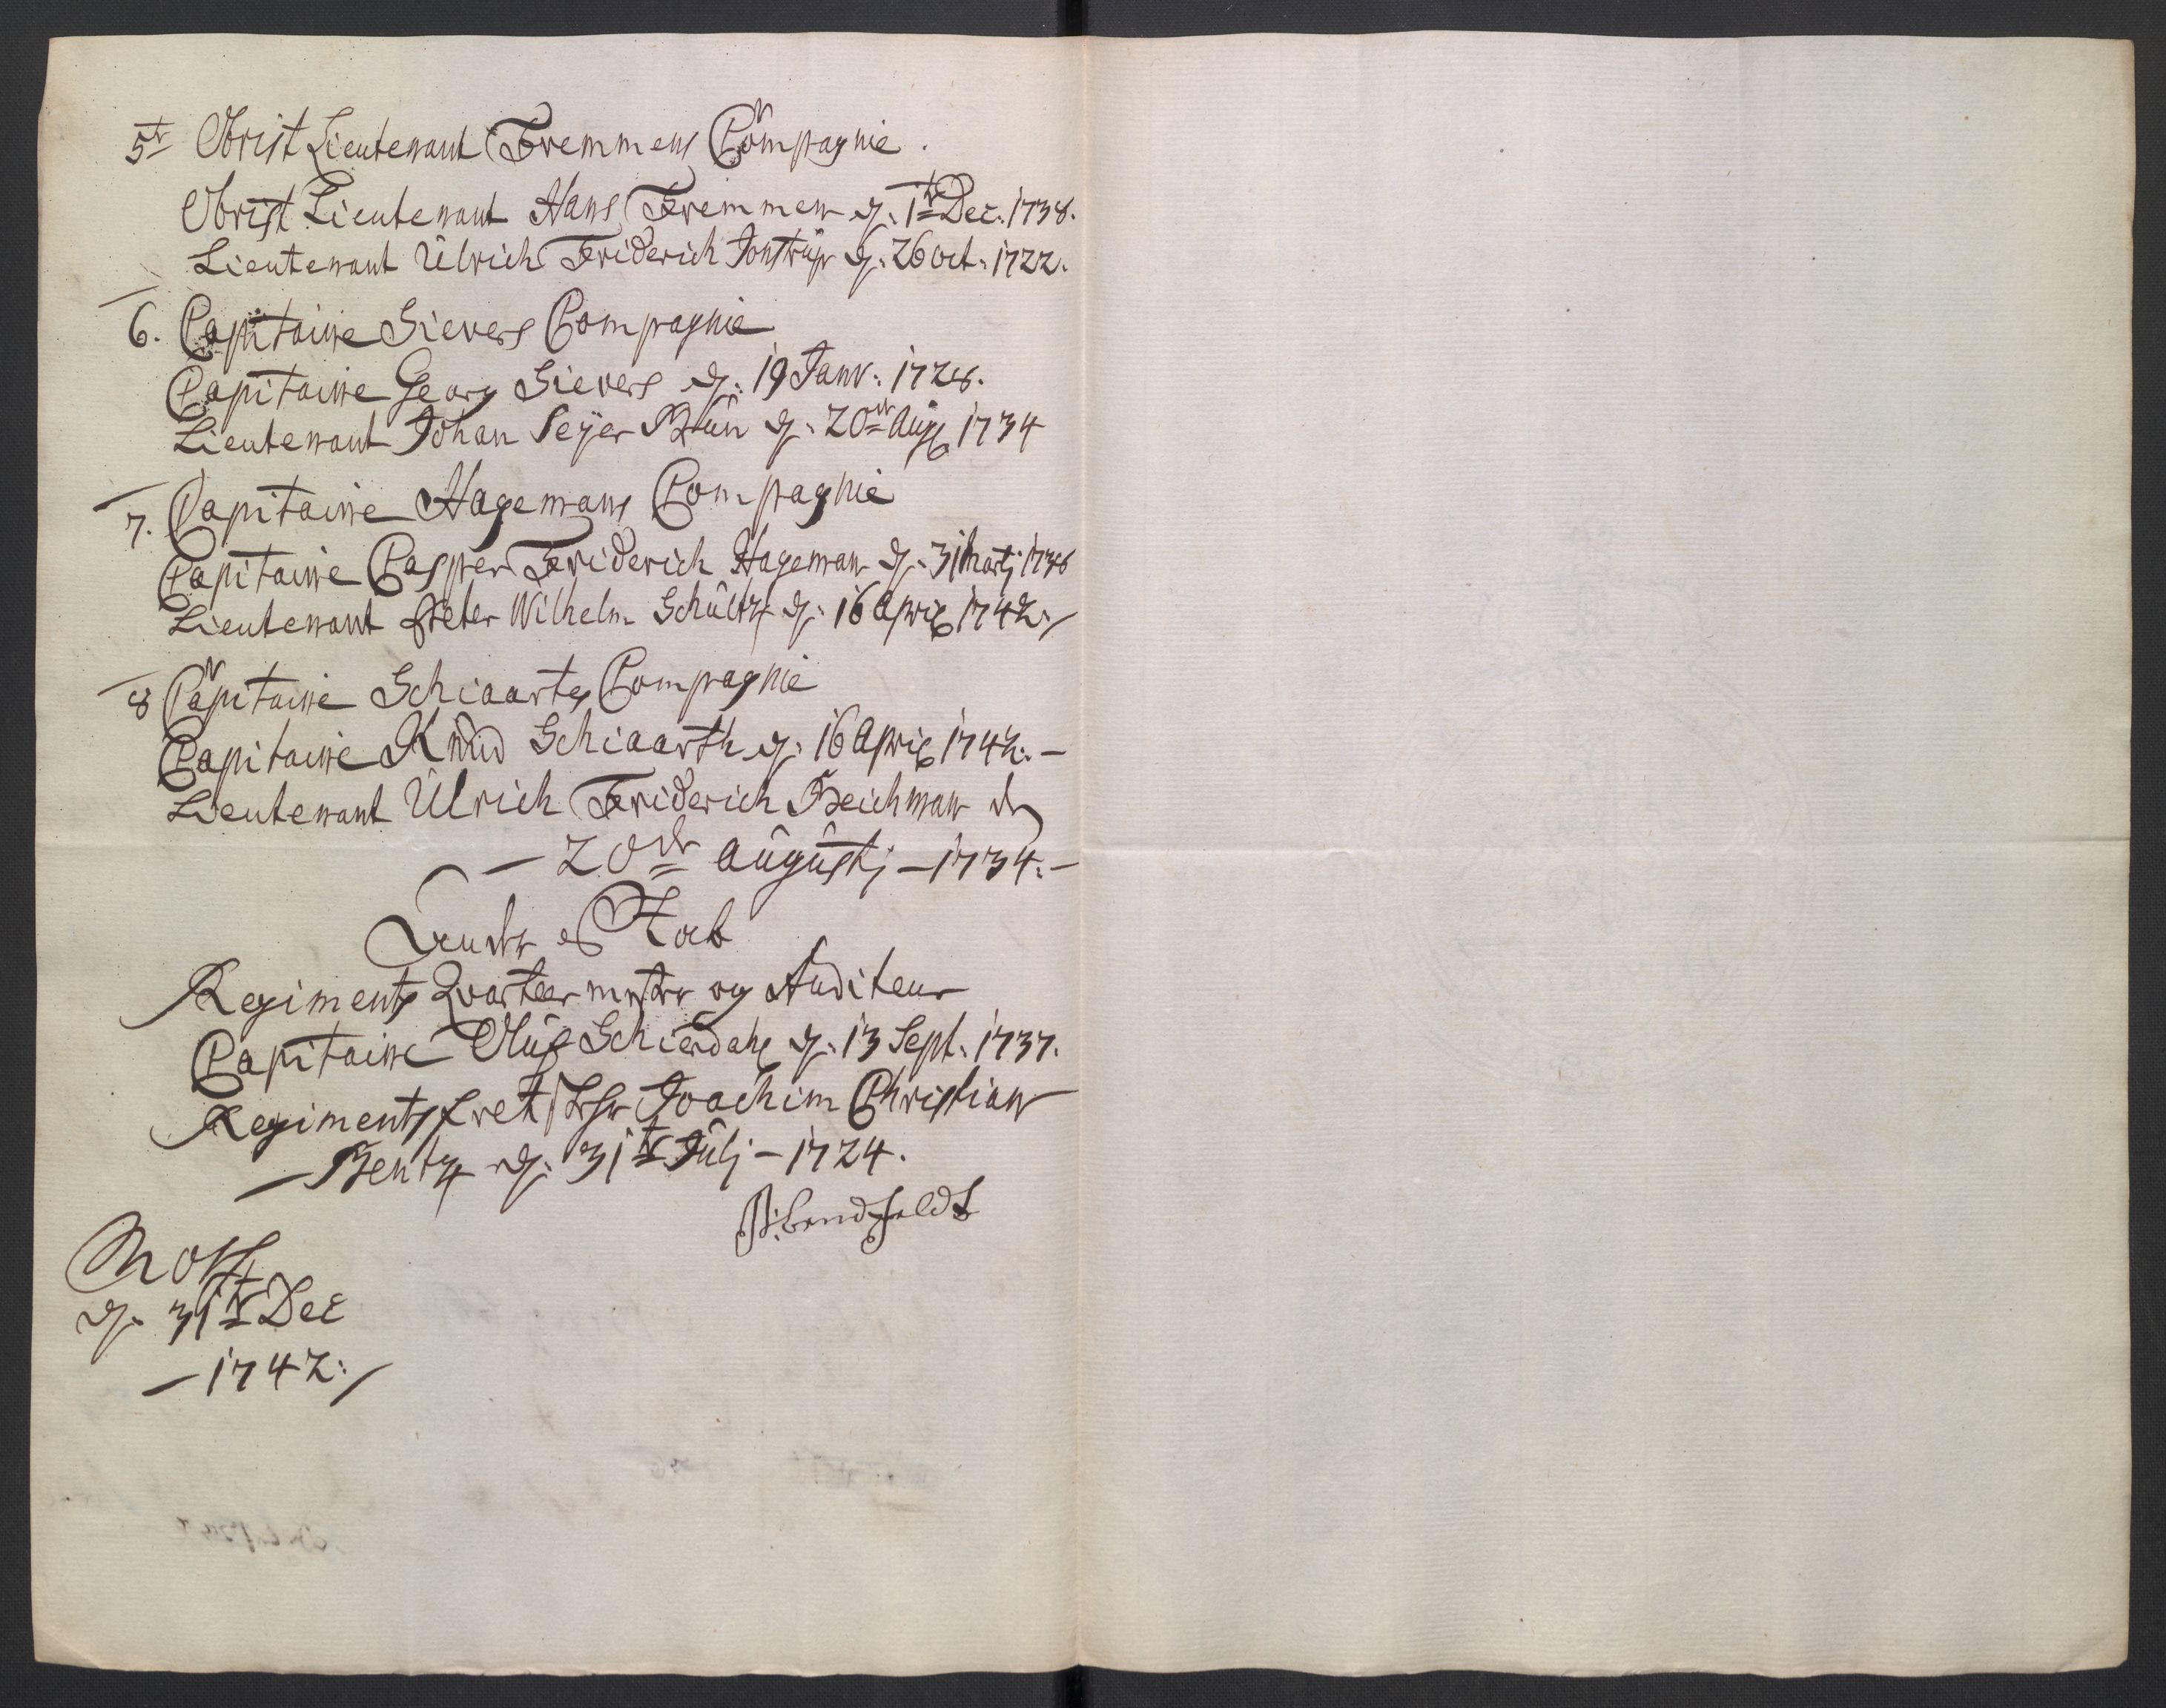 5te Obrist Lieutenant Fremmens Compagnie.
Obrist Lieutenant Hans Fremmen d: 1te Dec: 1738.
Lieutenant Ulrich Friderich Jonstrup d: 26 Oct: 1722.
6. Capitaine Sievers Compagnie
Capitaine Georg Sievers d: 19 Janr: 1728.
Lieutenant Johan Seyer d: 20de Aug 1734
7. Capitaine Hagemans Compagnie
Capitaine Casper Friderich Hageman d: 31 Martj
Lieutenant Peter Wilhelm Schultz d: 16 April 1742./
8 Capitaine Schiaarts Compagnie
Capitaine Knud Schiaarth d: 16 April 1742. –
Lieutenant Ulrich Friderich Beichman d
– 20de Augustj – 1734. –
Under Stab
Regiments Qvarteermester og Auditeur
Capitaine Oluf Schierdahl d: 13 Sept: 1737.
Regiments Joachim Christian
– Bentz d: 31te Julj – 1724.
Moss
d. 31te Dec
– 1742:/